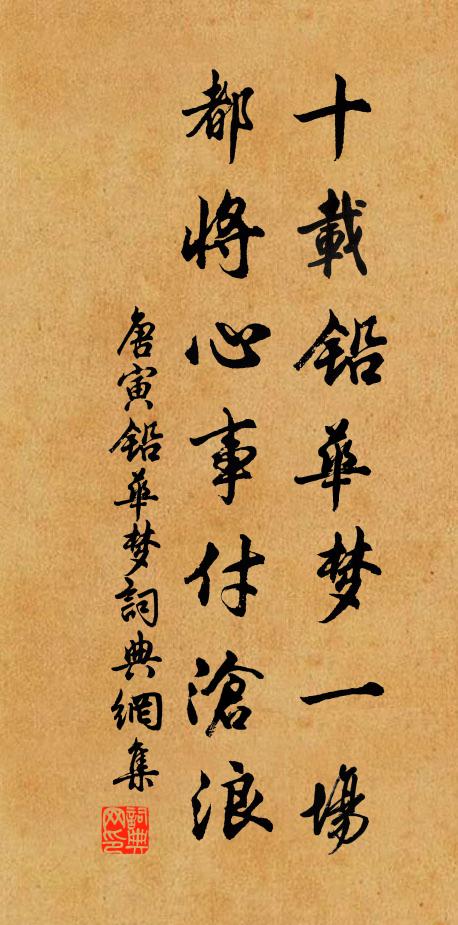 十載鉛華梦一場
都將心事付滄浪
唐寅鉛華梦詞典網集
詞典网印